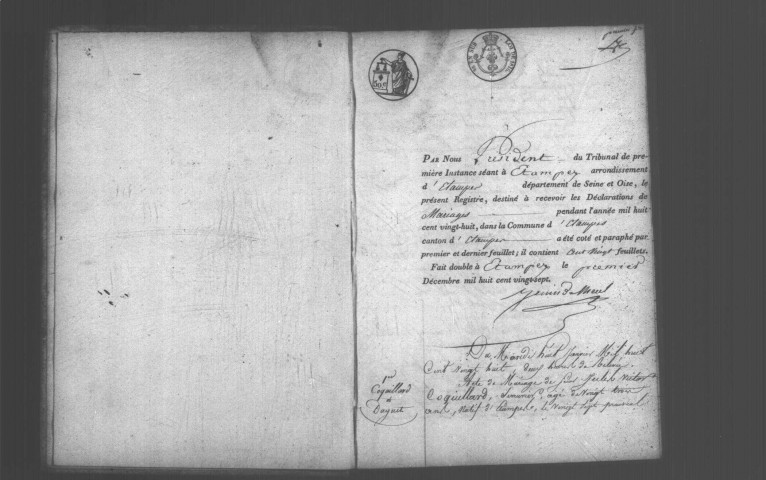 PAR NOUS Président du Tribunal de pre-
mière Instance séant à Etampes arrondissement
d'Etampes département de Seine et Oise, le
présent Registre, destiné à recevoir les Déclarations de
Mariages pendant l'année mil huit
cent vingt-huit, dans la Commune d'Etampes
canton d'Etampes a été coté et paraphé par
premier et dernier feuillet; il contient feuillets.
Fait double à Etampes le premier
Décembre mil huit cent vingt-sept.
Du Mardi huit Janvier Mil huit
Cent vingt huit, deux heures de
Acte de Mariage de
Coquillard, âgé de vingt
ans, natif d'Etampes, le vingt sept
Coquillard
et